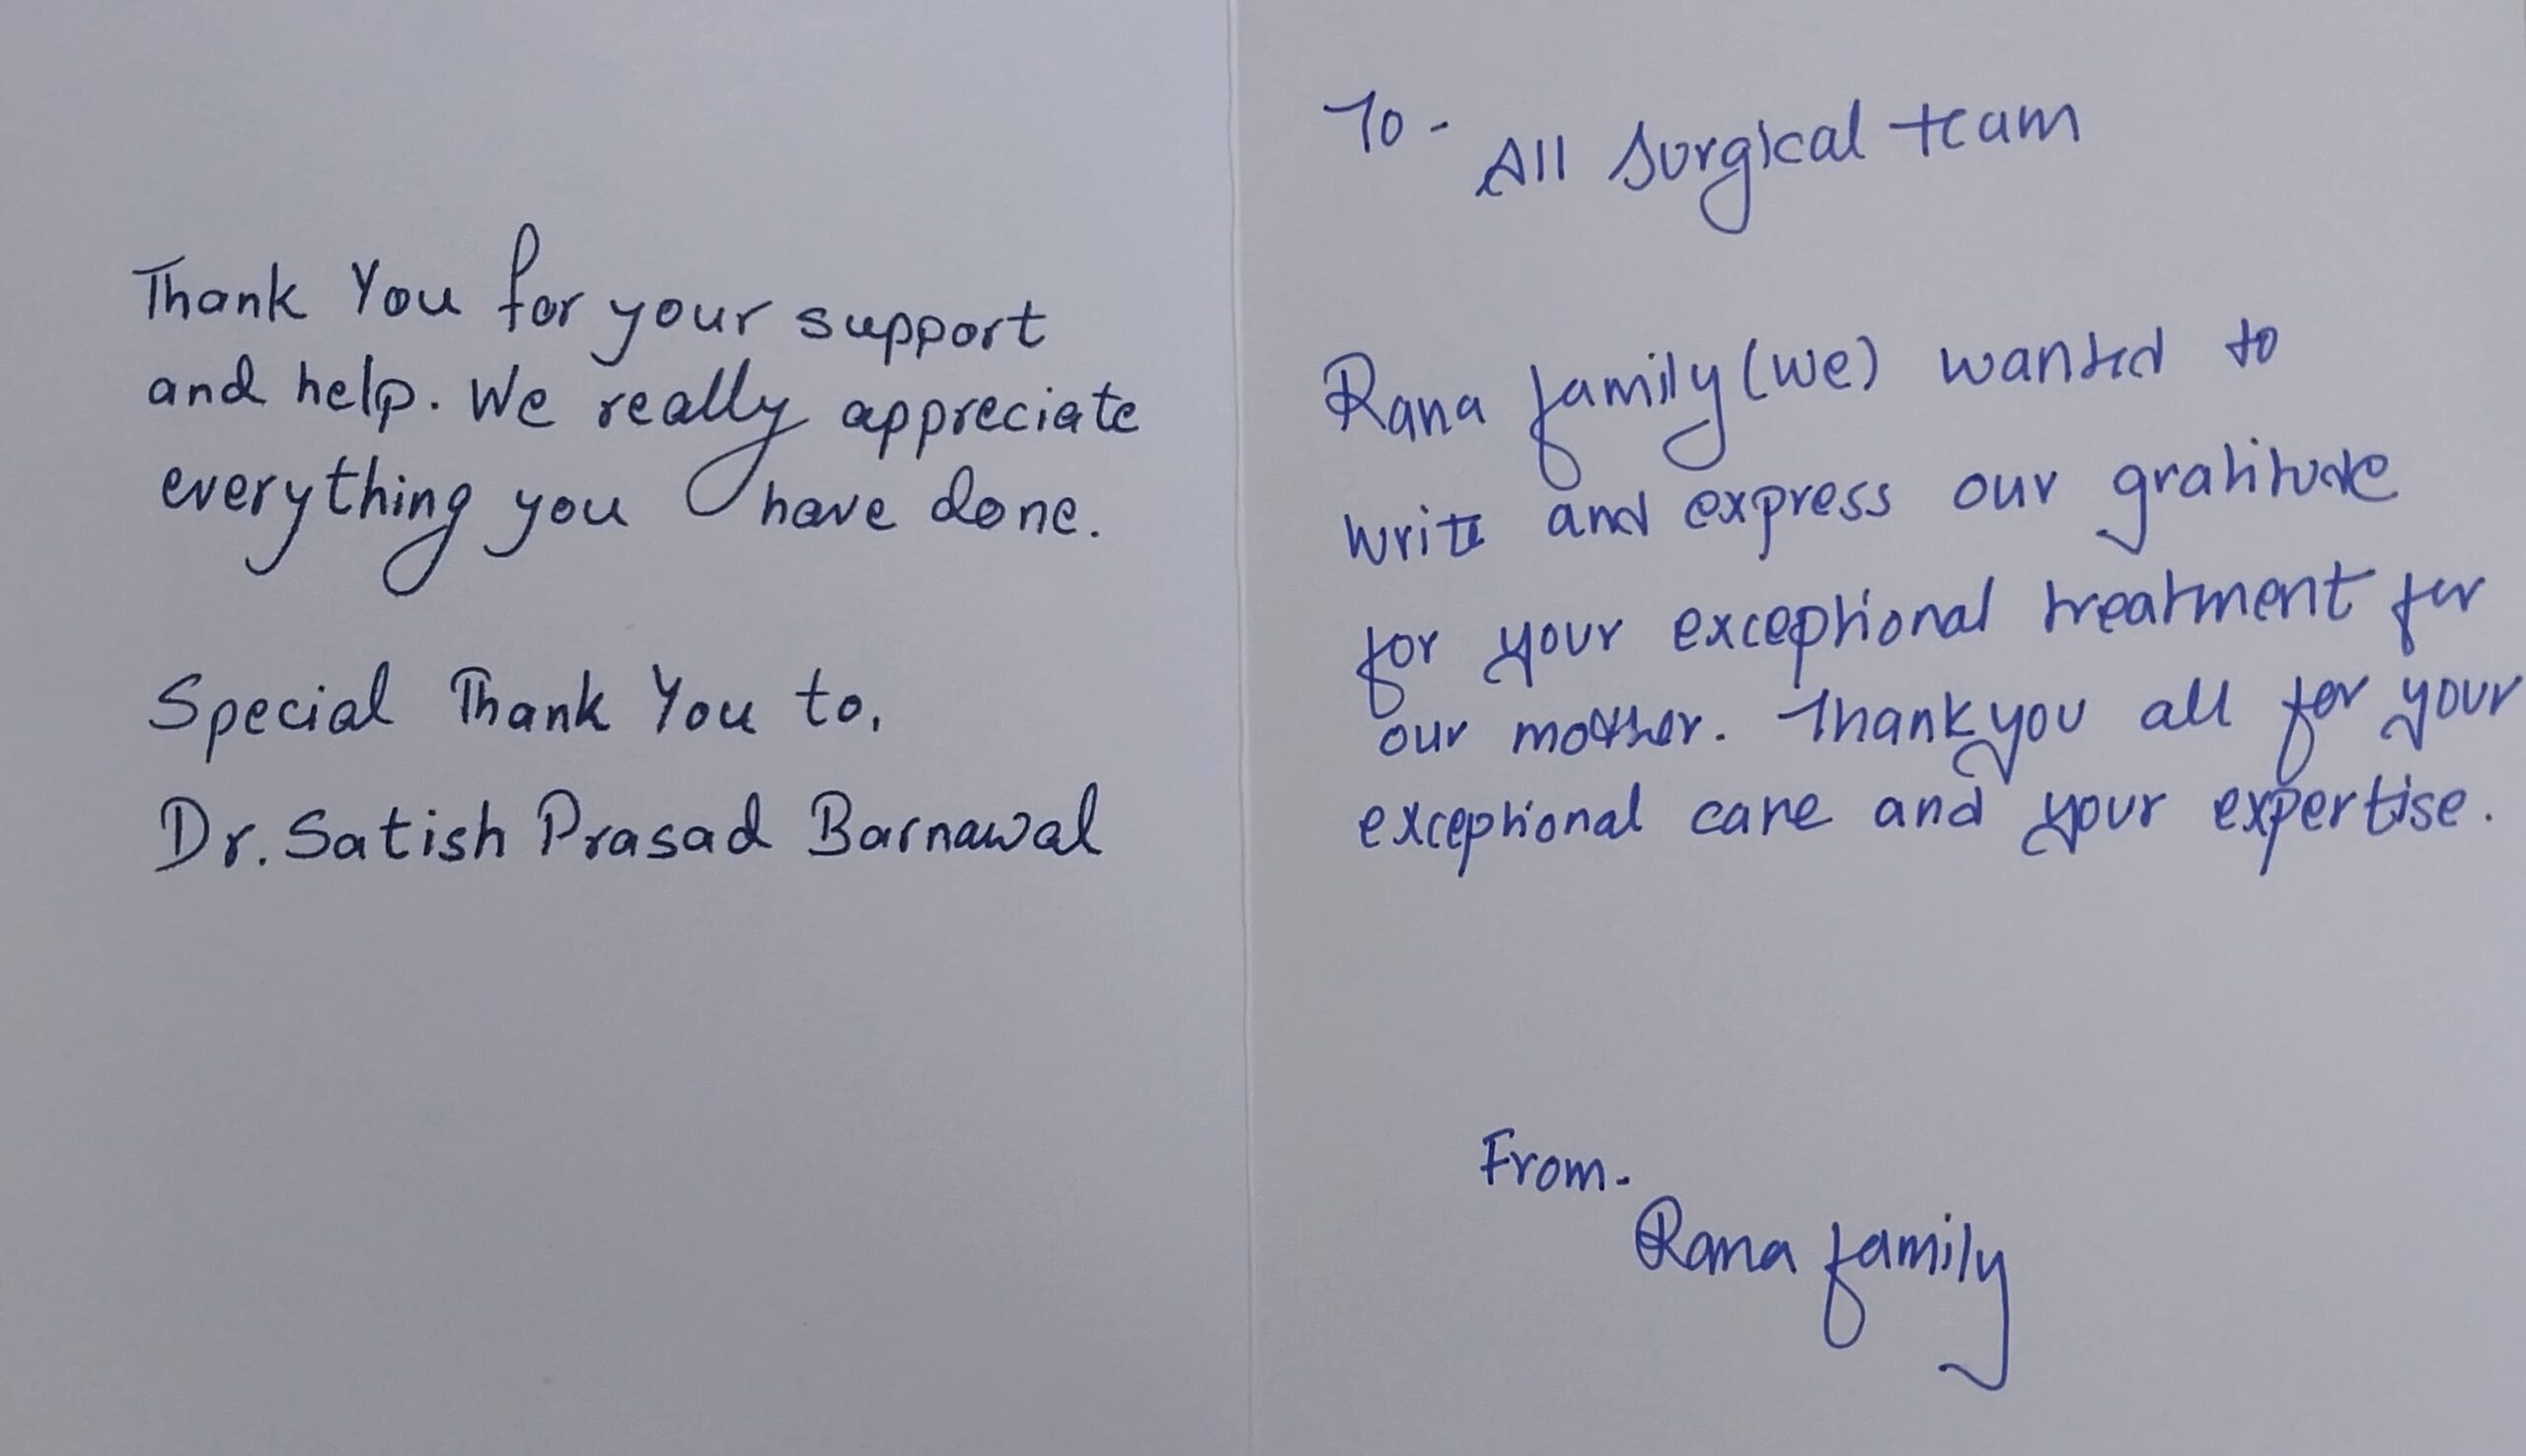 Thank You for your support
and help. We really appreciate
everything you have done.
Special Thank You to,
Dr. Satish Prasad Barnawal
To - All Surgical team
Rana family (we) wanted to
write and express our gratitude
for your exceptional treatment for
our mother. Thank you all for your
exceptional care and your expertise.
From -
Rana family